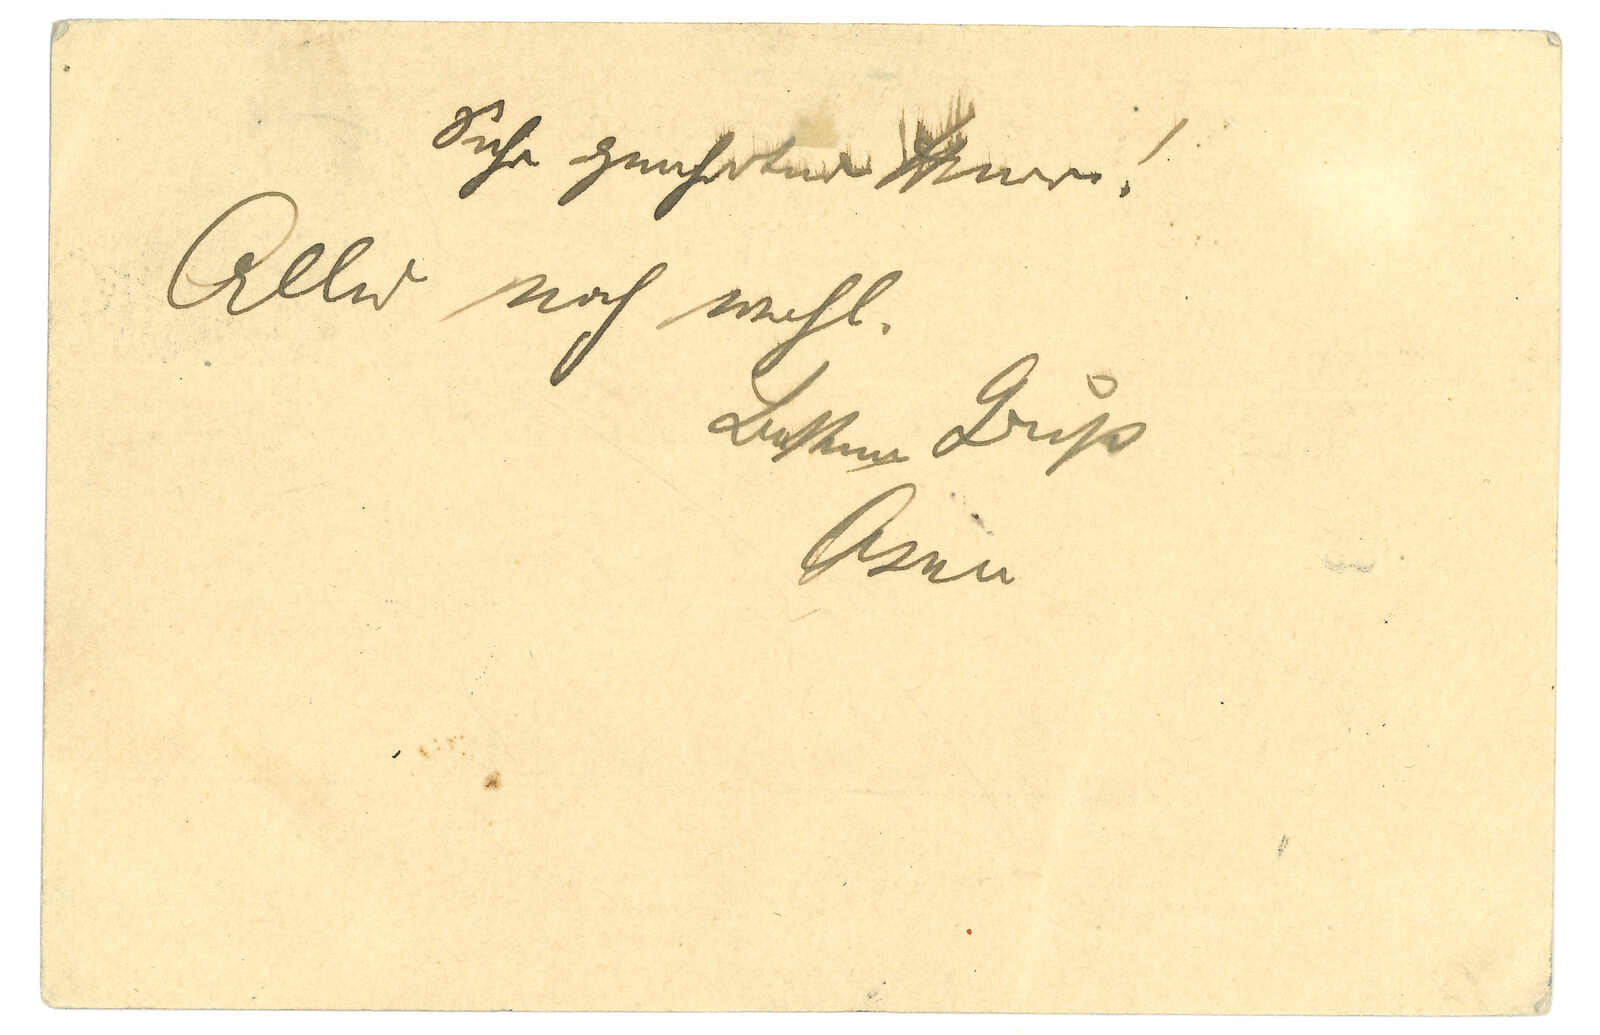 Sehr geehrter Herr!
Alles noch wohl.
Besten Gruß